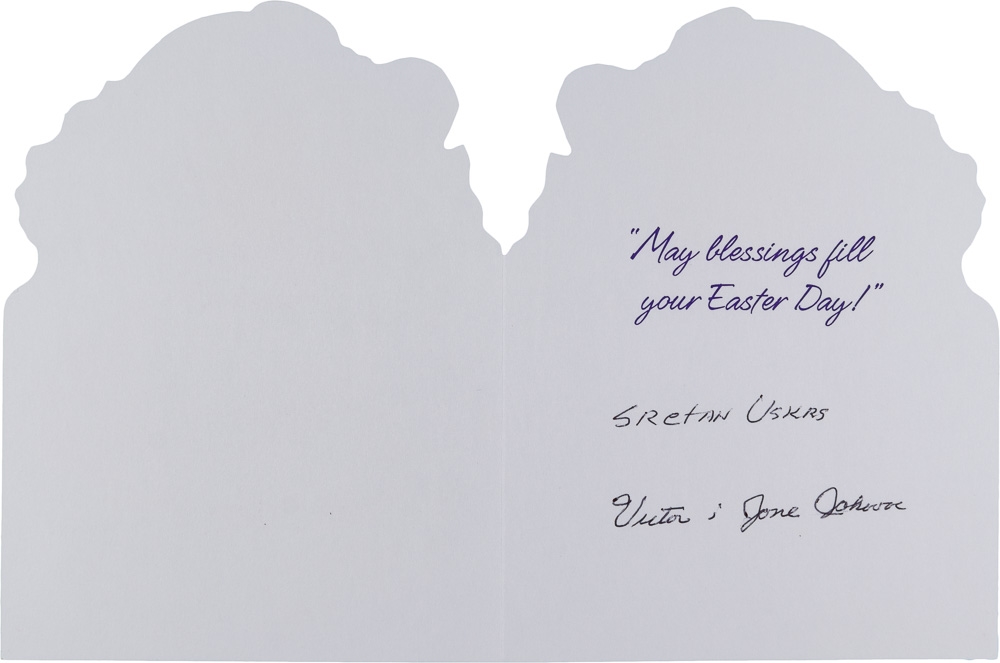 "May blessings fill
your Easter Day!"
SRetAN USKRS
Victor i Jone